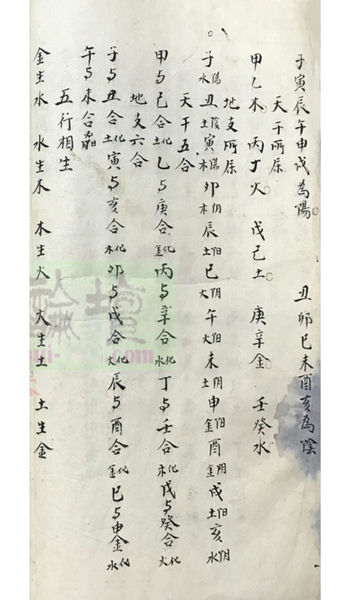 子寅辰午申戌為陽。 丑卯巳未酉亥為陰
天干所属
甲乙木。丙丁火。戊己土。庚辛金。壬癸水
地支所属
子水陽丑土陰寅木陽卯木阴辰土阳巳火阴午火阳未土阴申金阳酉金阴戌土阳亥水阴
天干五合
甲与己合化土乙与庚合化金丙与辛合化水丁与壬合化木戊与癸合化火
地支六合
子与丑合化土寅与亥合化木卯与戌合化火辰与酉合化金巳与申金化水
午与未合
五行相生
金生水 水生木 木生火 火生土 土生金
論壇
.com